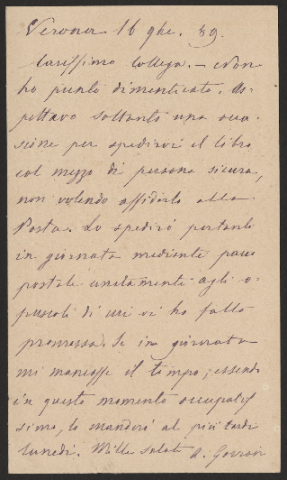 Verona 16 9bre. 89.
Carissimo Collega. — Non
ho punto dimenticato. As-
pettavo soltanto una occa-
sione per spedirvi il libro
col mezzo di persona sicura,
non volendo affidarlo alla
Posta. Lo spedirò pertanto
in giornata mediante pacco
postale unitamente agli o-
puscoli di cui vi ho fatto
promessa. Se in giornata
mi mancasse il tempo, essendo
in questo momento occupatis
simo, lo manderò al più tardi
lunedì. Mille saluti A.